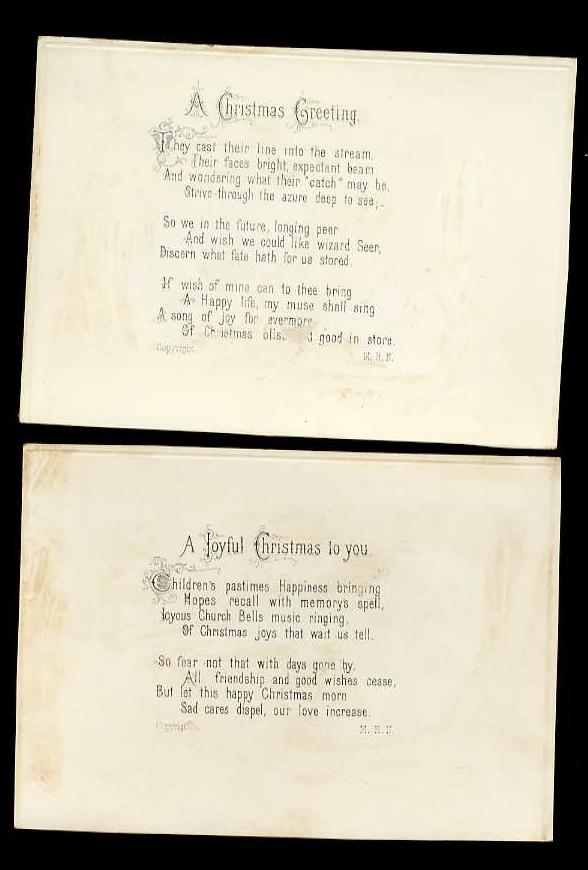 A Christmas Greeting.
They cast their line into the stream,
Their faces bright, expectant beam
And wondering what their "catch" may be,
Strive through the azure deep to see;-
So we in the future, longing peer
And wish we could like wizard Seer,
Discern what fate hath for us stored.
If wish of mine can to thee bring
A Happy life, my muse shall sing
A song of joy for evermore
Of Christmas good in store.
Copyright. M. H. N.
A Joyful Christmas to you.
Children's pastimes Happiness bringing
Hopes recall with memory's spell,
Joyous Church Bells music ringing,
Of Christmas joys that wait us tell.
So fear not that with days gone by,
All friendship and good wishes cease,
But let this happy Christmas morn
Sad cares dispel, our love increase.
Copyright. M. H. N.